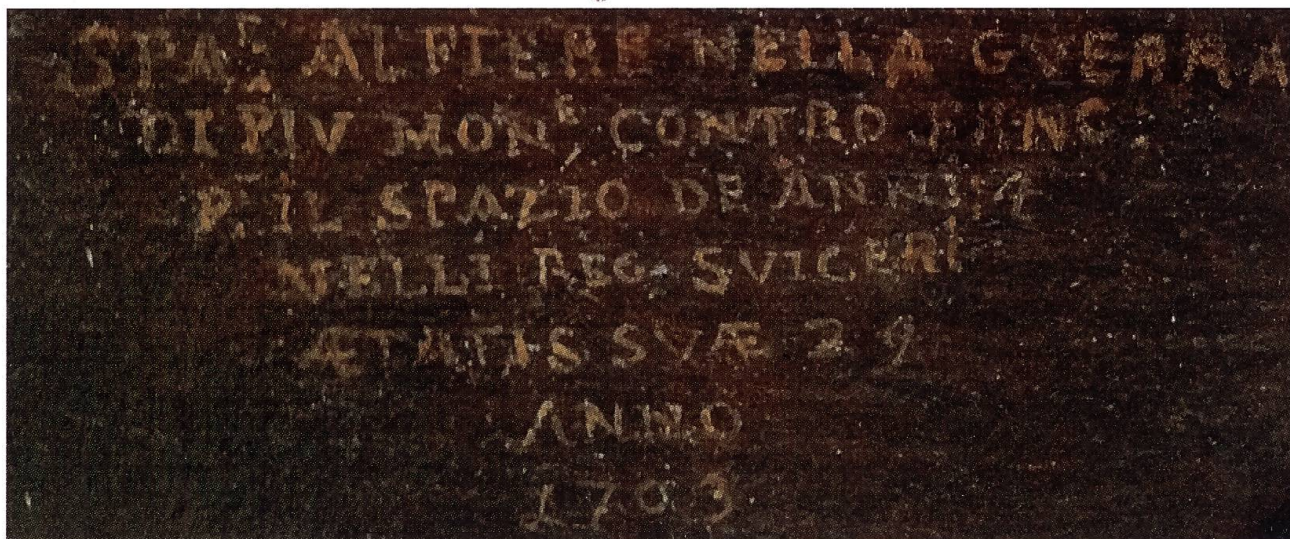 STA.^E ALFIERE NELLA GVERRA
DI PIV MON^E, CONTRO
P. IL SPAZIO DE ANNI 4
NELLI REG. SVICERI
ÆTATIS SVÆ 29
ANNO
1703